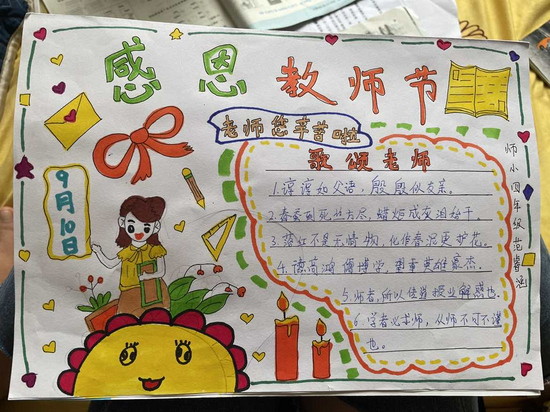 感恩 教师节
老师您辛苦啦
9月10日
歌颂老师
1.谆谆如父语,殷殷似友亲。
2.春蚕到死丝方尽,蜡炬成灰泪始干。
3.落红不是无情物,化作春泥更护花。
4.德高鸿儒博学,望重英雄豪杰。
5.师者,所以传道授业解惑也。
6.学者必求师,从师不可不谨
也。
师小四年级 范睿涵